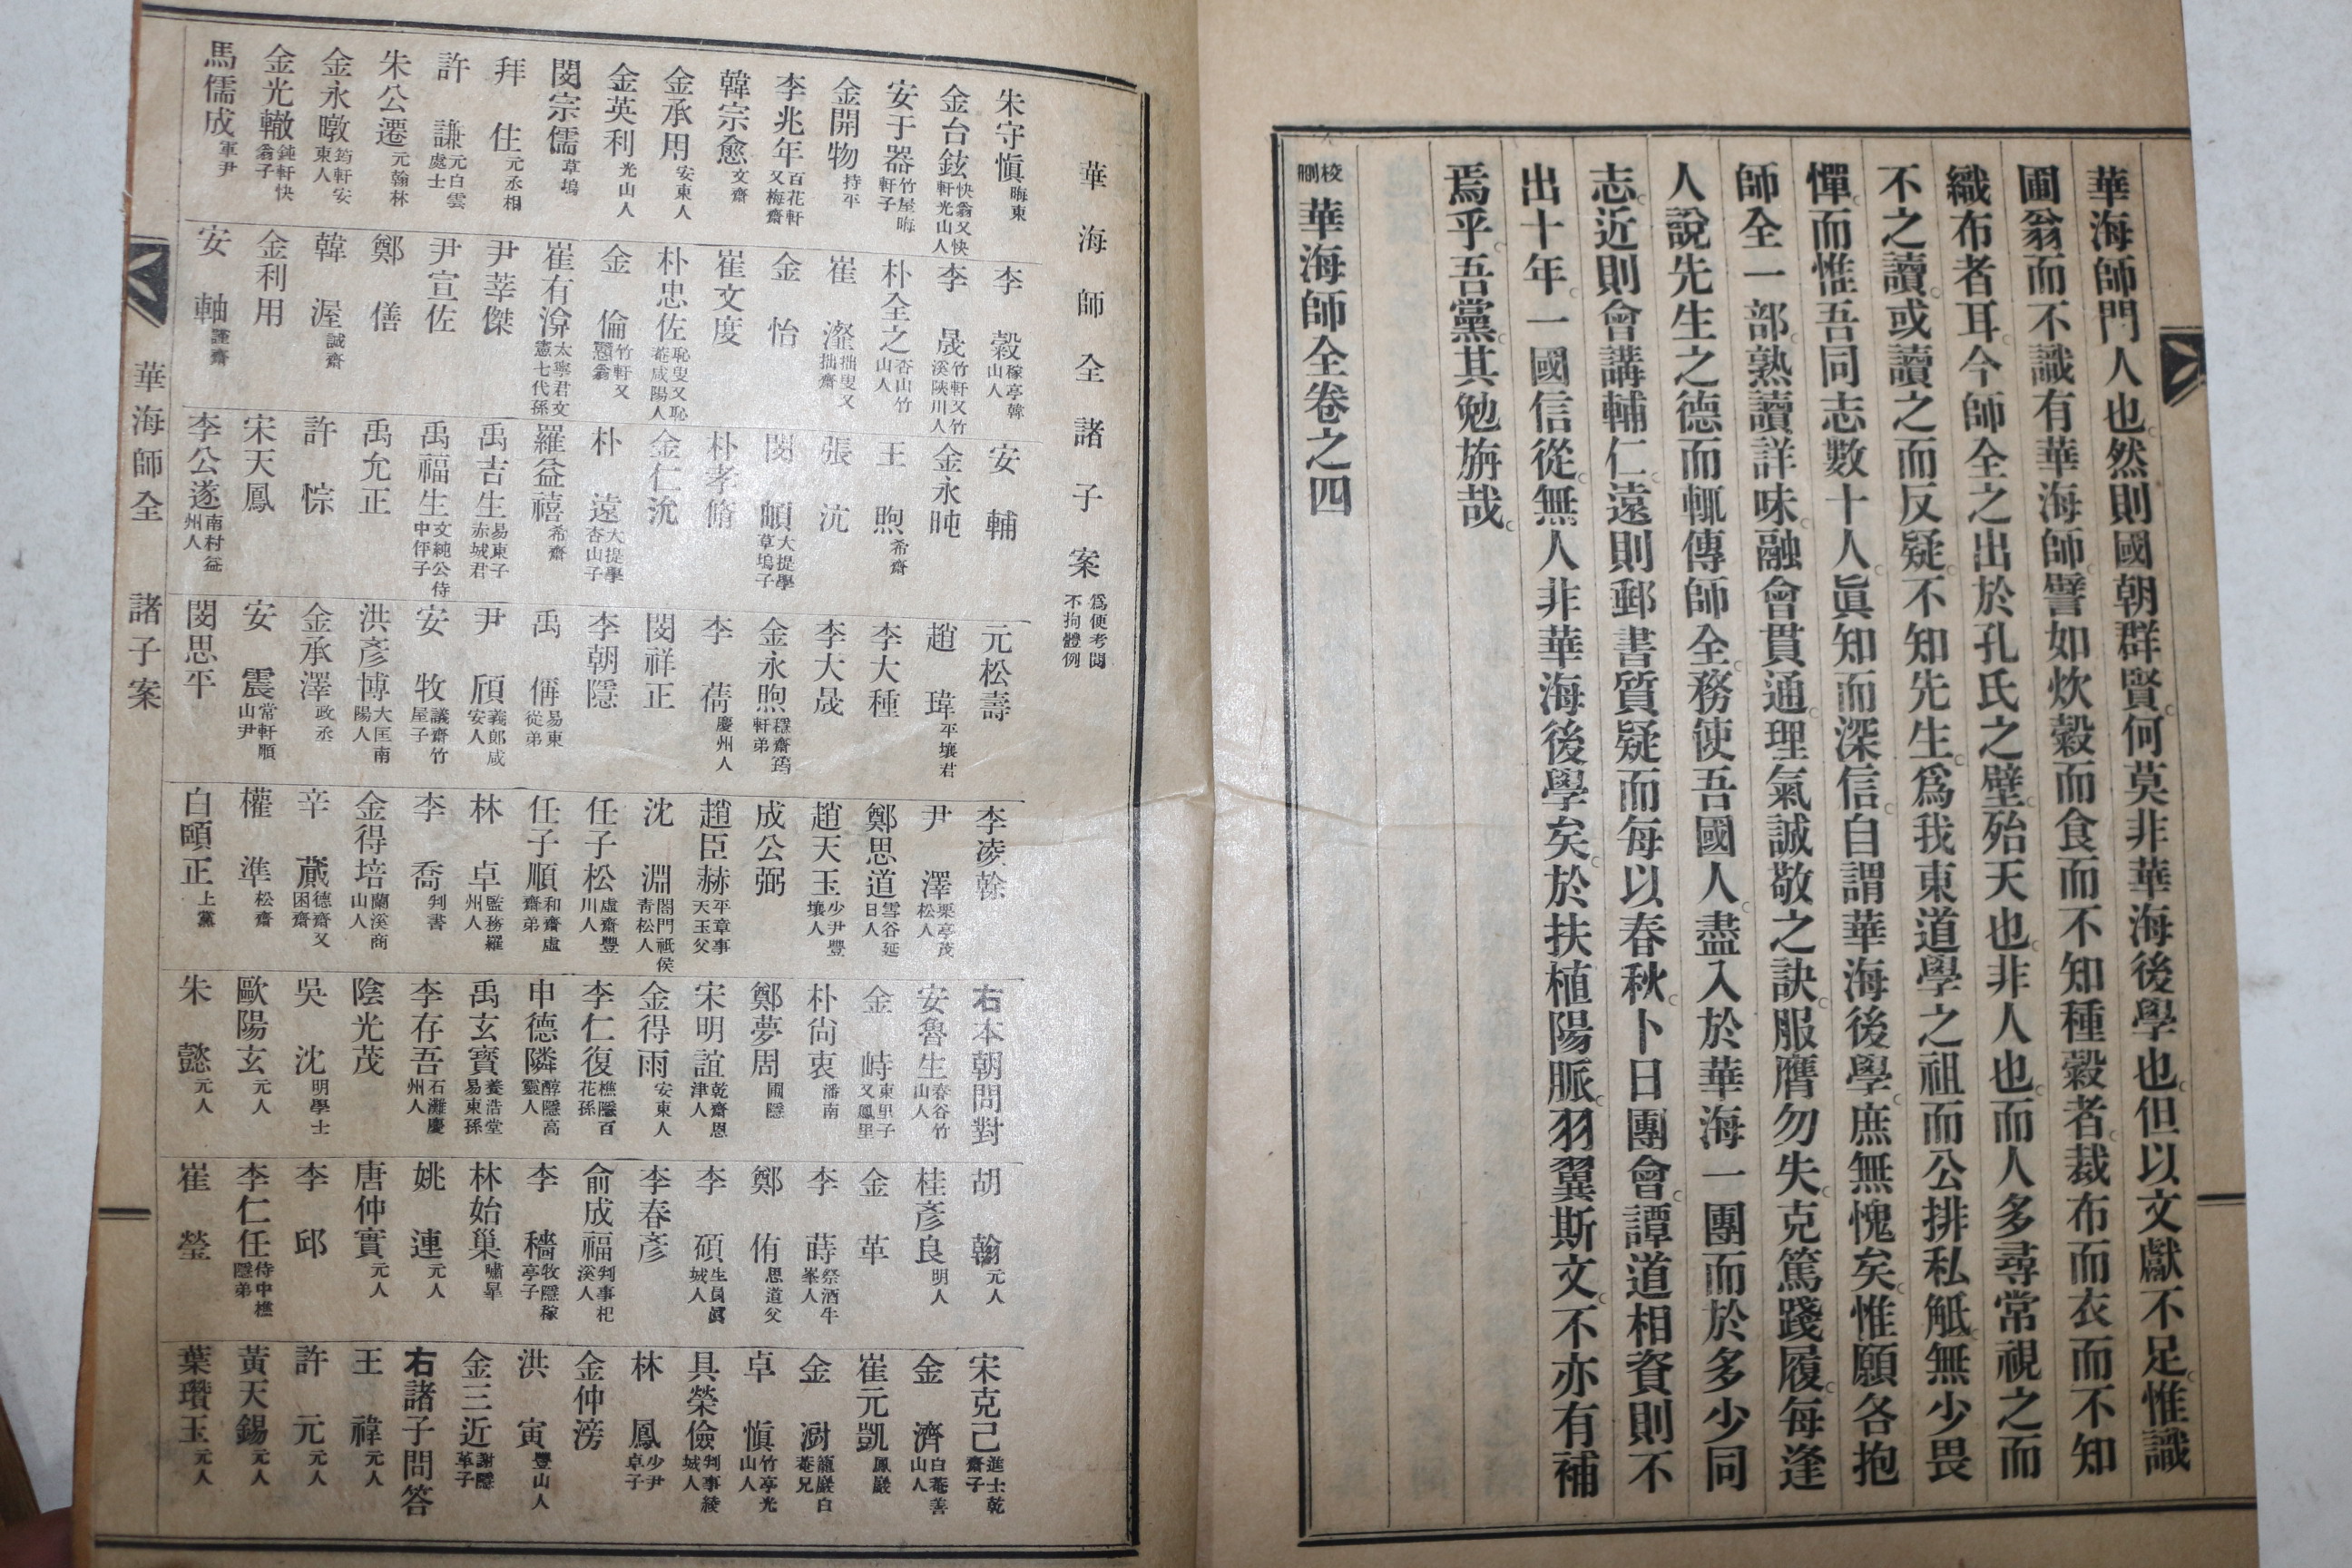 華海師門人也然則國朝群賢何莫非華海後學也但以文獻不足惟識
圃翁而不識有華海師譬如炊穀而食而不知種穀者裁布而衣而不知
織布者耳今師全之出於孔氏之壁殆天也非人也而人多尋常視之而
不之讀或讀之而反疑不知先生爲我東道學之祖而公排私觝無少畏
憚而惟吾同志數十人眞知而深信自謂華海後學庶無愧矣惟願各抱
師全一部熟讀詳味融會貫通理氣誠敬之訣服膺勿失克篤踐履每逢
人說先生之德而輒傳師全務使吾國人盡入於華海一團而於多少同
志近則會講輔仁遠則郵書質疑而每以春秋卜日團會譚道相資則不
出十年一國信從無人非華海後學矣於扶植陽脈羽翼斯文不亦有補
焉乎吾黨其勉旃哉
校刪華海師全卷之四
華海師全諸子案 爲便考閱不拘體例
朱守愼晦東 李穀稼亭韓山人 安輔 元松壽 李凌幹 右本朝問對 胡翰元人 宋克己進士乾齋子
金台鉉快翁又快軒光山人 李晟竹軒又竹溪陝川人 金永旽 趙瑋平壤君 尹澤栗亭茂松人 安魯生春谷竹山人 桂彥良明人 金濟白菴善山人
安于器竹屋晦軒子 朴全之杏山竹山人 王煦希齋 李大種 鄭思道雪谷延日人 金峙東里子又鳳里 金革 崔元凱鳳巖
金開物持平 崔瀣拙叟又拙齋 張沆 李大晟 趙天玉少尹豐壤人 朴尙衷潘南 李蒔祭酒牛峯人 金澍籠巖白菴兄
李兆年百花軒又梅齋 金怡 閔頔大提學草塢子 金永煦穩齋筠軒弟 成公弼 鄭夢周圃隱 鄭侑思道父 卓愼竹亭光山人
韓宗愈文齋 崔文度 朴孝脩 李蒨慶州人 趙臣赫平章事天玉父 宋明誼乾齋恩津人 李碩生員眞城人 具榮儉判事綾城人
金承用安東人 朴忠佐恥叟又恥菴咸陽人 金仁沇 閔祥正 沈淵閤門祗侯靑松人 金得雨安東人 李春彥 林鳳少尹卓子
金英利光山人 金倫竹軒又戇翁 朴遠大提學杏山子 李朝隱 任子松虛齋豐川人 李仁復樵隱百花孫 俞成福判事杞溪人 金仲滂
閔宗儒草塢 崔有渰太寧君文憲七代孫 羅益禧希齋 禹偁易東從弟 任子順和齋虛齋弟 申德隣醇隱高靈人 李穡牧隱稼亭子 洪寅豐山人
拜住元丞相 尹莘傑 禹吉生易東子赤城君 尹頎義郞咸安人 林卓監務羅州人 禹玄寶養浩堂易東孫 林始巢嘯皐 金三近謝隱革子
許謙元白雲處士 尹宣佐 禹福生文純公侍中伻子 安牧議齋竹屋子 李喬判書 李存吾石灘慶州人 姚連元人 右諸子問答
朱公遷元翰林 鄭僐 禹允正 洪彥博大匡南陽人 金得培蘭溪商山人 陰光茂 唐仲實元人 王褘元人
金永暾筠軒安東人 韓渥誠齋 許悰 金承澤政丞 辛蕆德齋又困齋 吳沈明學士 李邱 許元元人
金光轍鈍軒快翁子 金利用 宋天鳳 安震常軒順山尹 權準松齋 歐陽玄元人 李仁任侍中樵隱弟 黃天錫元人
馬儒成軍尹 安軸謹齋 李公遂南村益州人 閔思平 白頤正上黨 朱懿元人 崔瑩 葉瓚玉元人
華海師全 諸子案